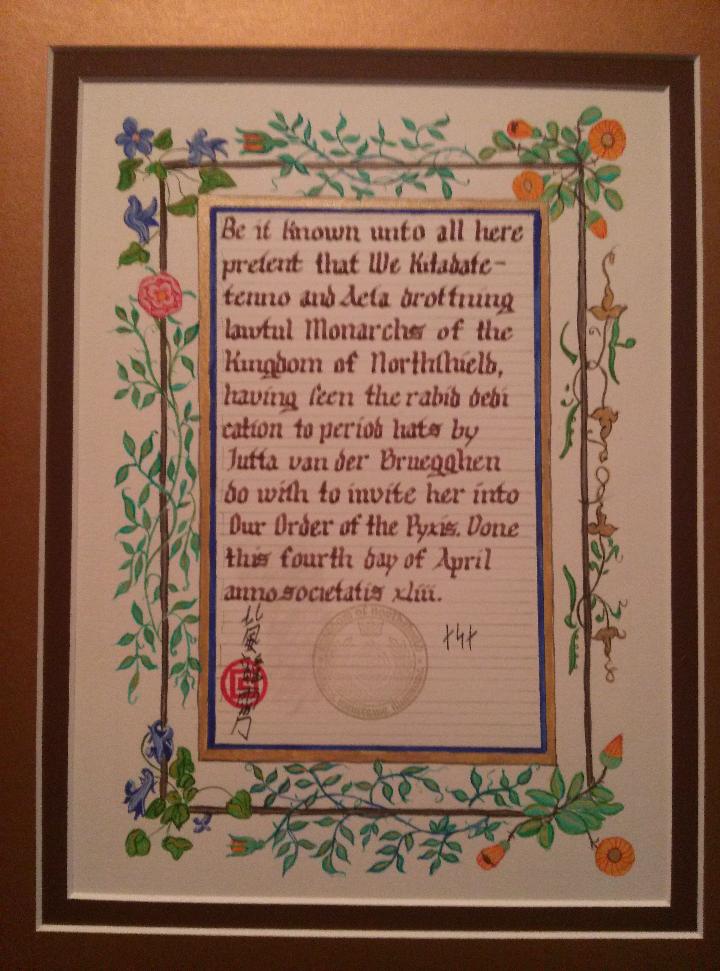 Be it known unto all here
present that We Kitadate-
tenno and Aesa drottning
lawful Monarchs of the
Kingdom of Northshield,
having seen the rabid dedi
cation to period hats by
Jutta van der Bruegghen
do wish to invite her into
Our Order of the Pyxis. Done
this fourth day of April
anno societatis xliii.